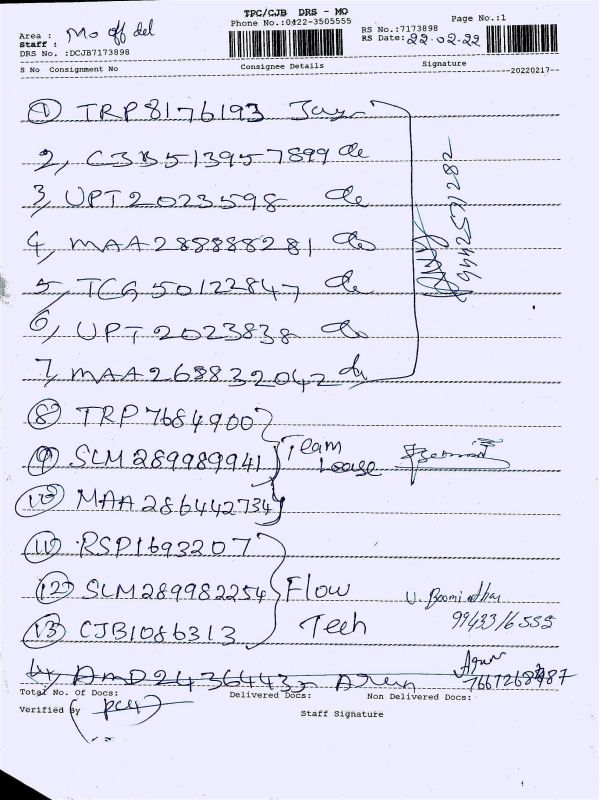 TPC/CJB DRS - MO
Phone No.:0422-3505555
Page No.:1
Area : Mo off del
RS No.:7173898
Staff :
RS Date: 22.02.22
DRS No. :DCJB7173898
S No Consignment No Consignee Details Signature
20220217
1 TRP8176193 Jay
2, CJB513957899 do
3, UPT2023598 do
4, MAA288888281 do
9442571282
5, TCG50122847 do
6, UPT2023838 do
7, MAA268832042 do
8 TRP7684900
9 SLM289989941 Team Lease
10 MAA286442734
11 RSP1693207
12 SLM289982254 Flow Tech
13 CJB1086313
U. Boominathan
9943316555
14, AMD24364433 Arun
Total No. Of Docs: Delivered Docs: Non Delivered Docs:
Verified By
Staff Signature